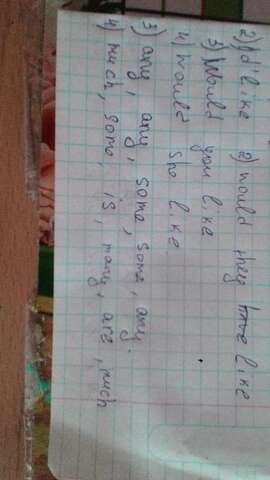 2) I'd like 2) would they like
3) Would you like
4) would she like
3) any, any, some, some, any.
4) much, some, is, many, are, much